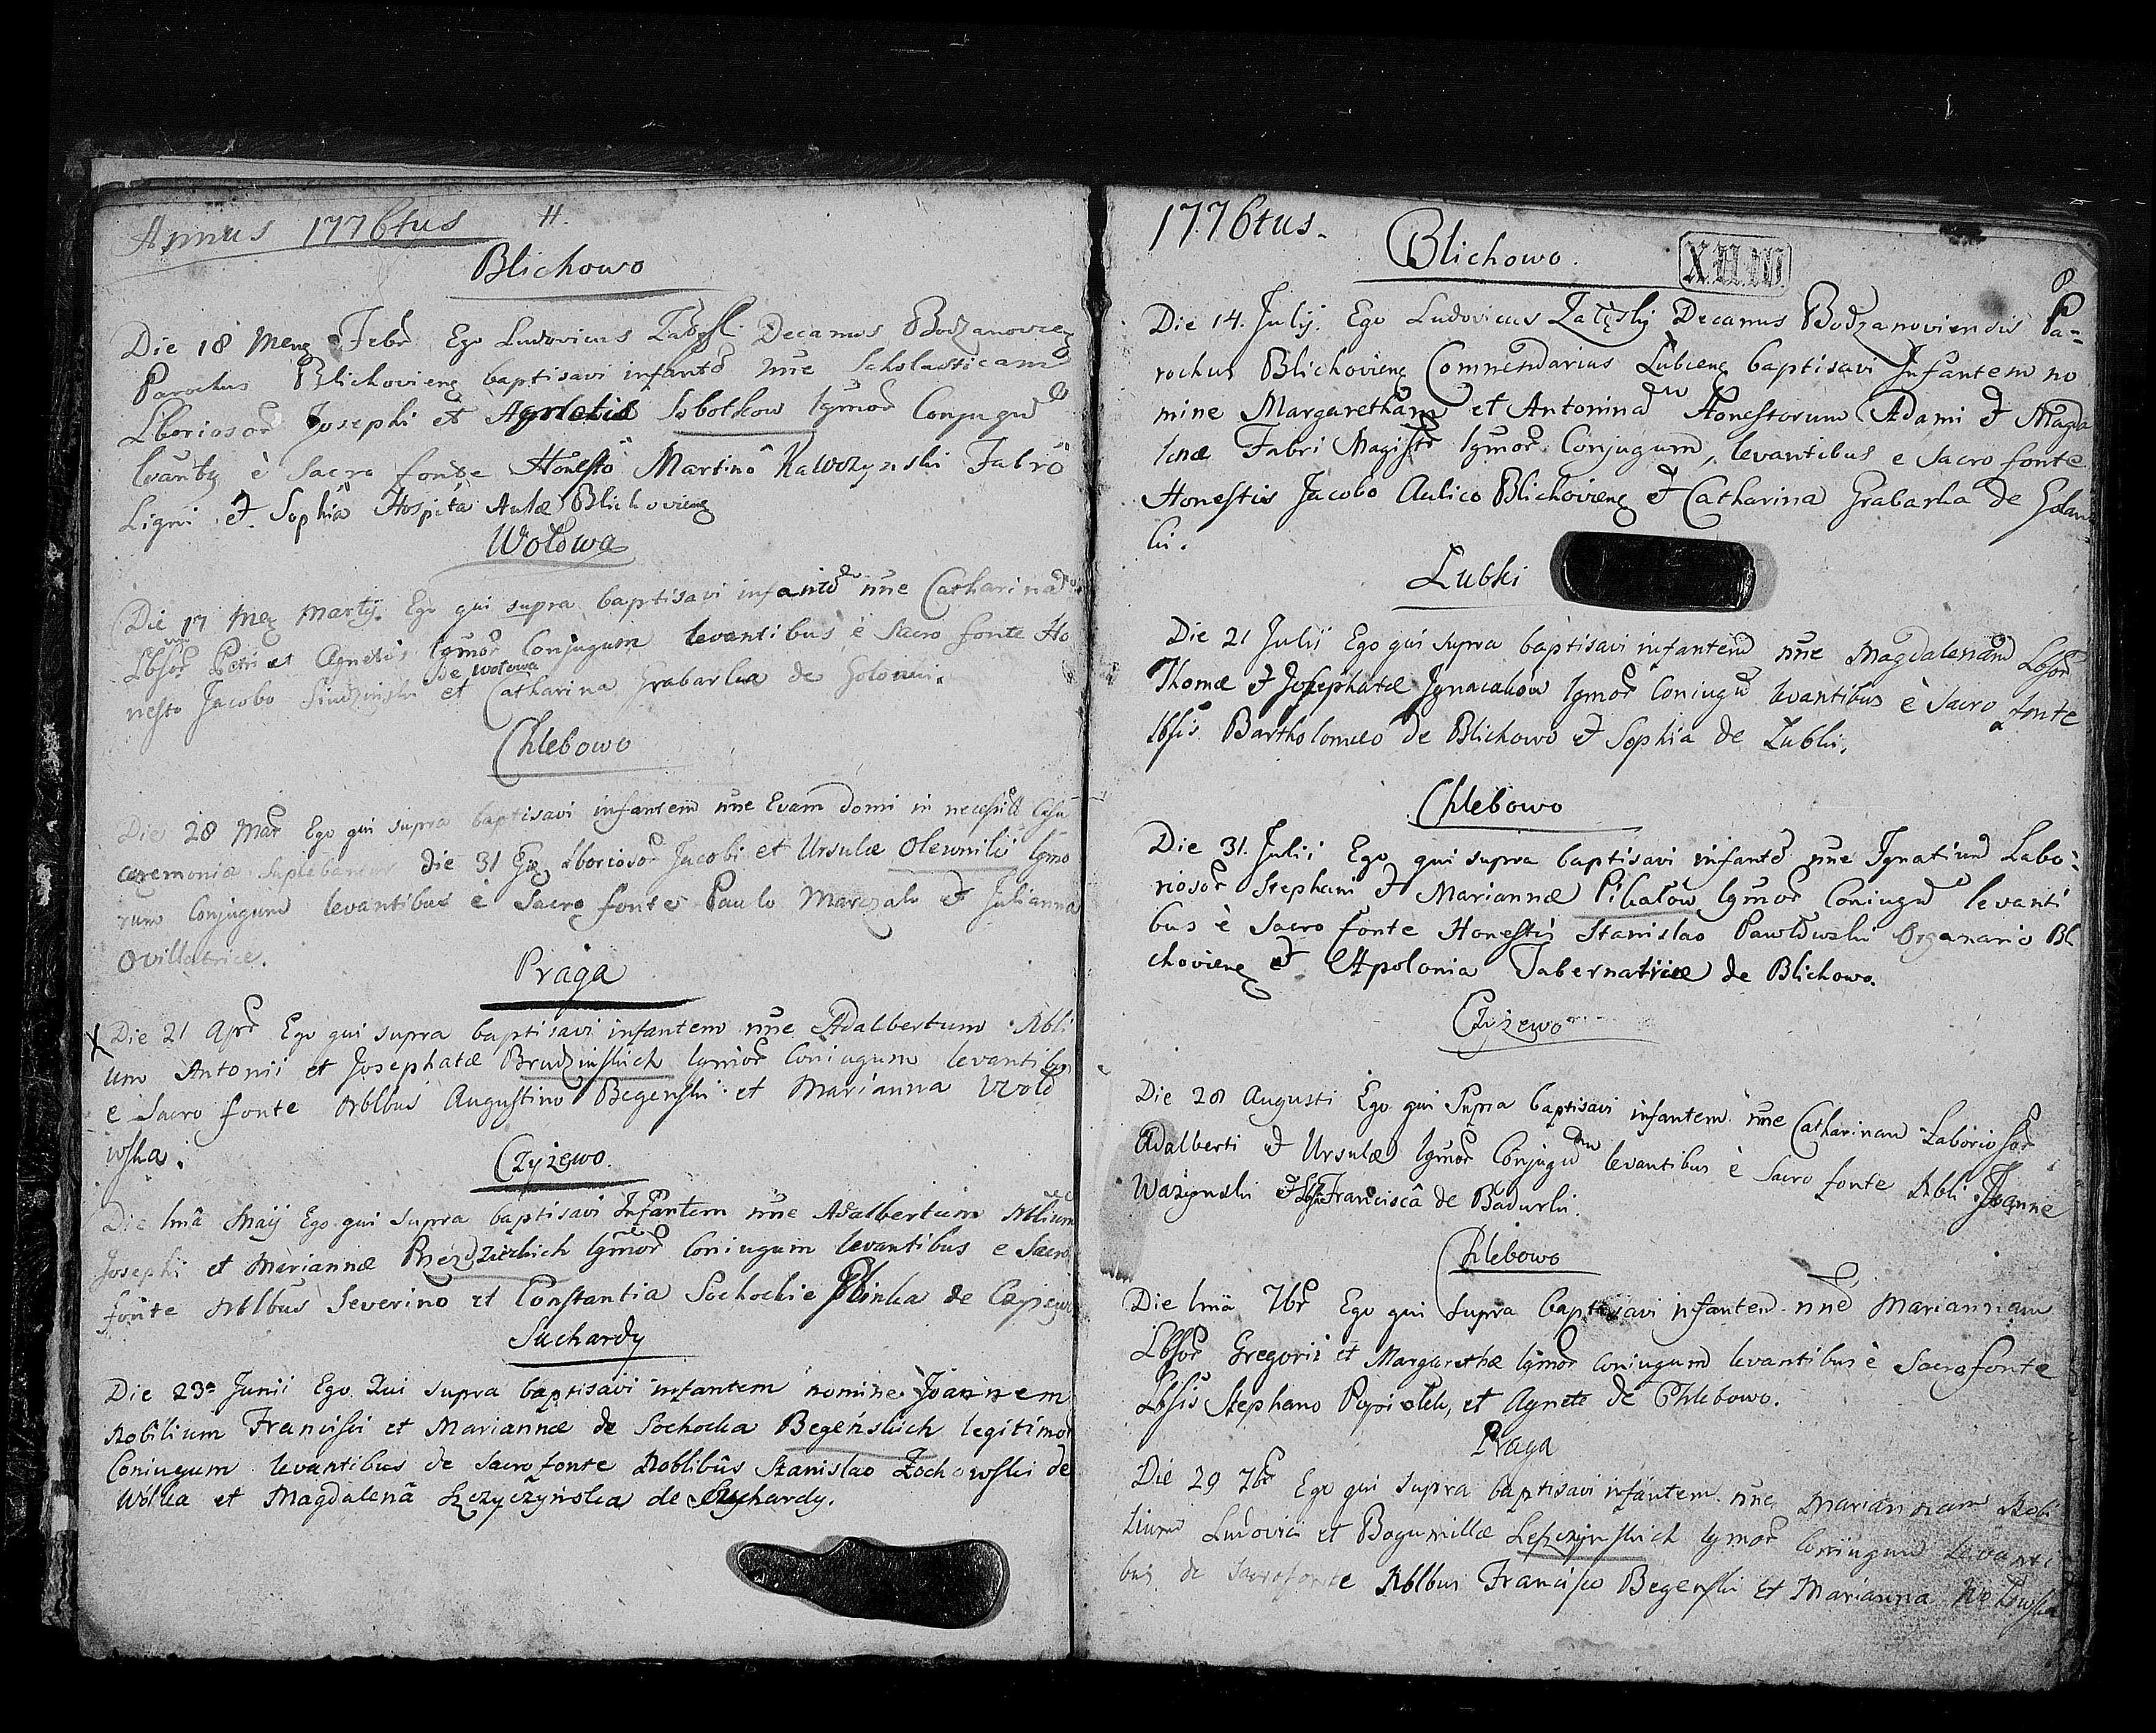 Annus 1776tus
Blichowo
Die 18 Mens Febr Ego Ludovicus Decanus Bodzanoviens
Parochus Blichoviens baptisavi infante nne Scholasticam
Lboriosor Josephi et Agnetis Sobotkow lgmor Conjugu
levantb è Sacro fonte Honesto Martino Kawozynski Fabro
Ligni et Sophia Hospita Aulæ Blichoviens
Wołowa
Die 17 Mens Martij Ego qui supra baptisavi infante nne Catharina
Lbsor Petri et Agnetis lgmor Conjugum levantibus è Sacro fonte Ho
de Wołowa
nesto Jacobo et Catharina Grabarka de Golanki.
Chlebowo
Die 28 Mar Ego qui supra baptisavi infantem nne Evam domi in necessit Casu
ceremoniæ suplebantur die 31 Lboriosor Jacobi et Ursulæ Olewniki lgmo
rum Conjugum levantibus è Sacro fonte Paulo Marczak et Julianna
Ovillatrice.
Praga
X Die 21 Apr Ego qui supra baptisavi infantem nne Adalbertum Nbli
um Antonii et Josephatæ Brudzinskich lgmor Coniugum levantibus
e Sacro fonte Nblbus Augustino Begenski et Marianna
wska.
Czyżewo
Die 1mâ Maij Ego qui supra baptisavi Infantem nne Adalbertum Nblium
Josephi et Mariannæ lgmor Coniugum levantibus e Sacro
fonte Nblbus Severino et Constantia Sochockie de Czyżewo
Suchardy
Die 23a Junii Ego Qui supra baptisavi infantem nomine Joannem
Nobilium Francisci et Mariannæ de Sochocka Begeńskich legitimor
Coniugum levantibus de Sacro fonte Noblibûs Stanislao Zochowski de
Wólka et Magdalenâ Szczyczyńska de Suchardy.
1776tus.
Blichowo.
X.II.
8
Die 14. Julij. Ego Ludovicus Załęski Decanus Bodzanoviensis Pa=
rochus Blichoviens Commendarius Lubcens baptisavi Infantem no
mine Margaretham et Antonina Honestorum Adami et Magda
lenæ Fabri Magistr lgmor Conjugum, levantibus e Sacro fonte
Honestis Jacobo Aulico Blichoviens et Catharina Grabarka de Golan
ki.
Lubki
Die 21 Julii Ego qui supra baptisavi infantem nne Magdalenam Lbsor
Thomæ et Josephatæ Ignacakow lgmor Coniugu levantibus è Sacro fonte
lbsis Bartholomeo de Blichowo et Sophia de Lubki.
Chlebowo
Die 31. Julii Ego qui supra baptisavi infante nne Ignatium Labo=
riosor Stephani et Mariannæ Pikatow lgmor Coniugu levanti
bus è Sacro fonte Honestis Stanislao Pawłowski Organario Bli
choviens et Apolonia Tabernatrice de Blichowo.
Czyżewo
Die 28 Augusti Ego qui supra baptisavi infantem nne Catharinam Laboriosor
Adalberti et Ursulæ lgmor Conjugu levantibus è Sacro fonte Nbli Joanne
Ważynski et Francisca de Badurki.
Chlebowo
Die 1mâ 7br Ego qui supra baptisavi infantem nne Mariannam
Lbsor Gregorii et Margarethæ lgmor coniugum levantibus è Sacro fonte
Lbsis Stephano et Agnete de Chlebowo.
Praga
Die 29 7br Ego qui supra baptisavi infantem nne Mariannam Nobi
lium Ludovici et Bogumillæ lgmor Coniugum levanti
bus de Sacro fonte Nblbus Francisco Begenski et Marianna